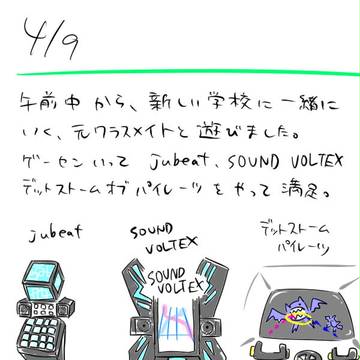 4/9
午前中から、新しい学校に一緒に
いく、元クラスメイトと遊びました。
ゲーセンいって jubeat、SOUND VOLTEX
デットストームオブパイレーツをやって満足。
jubeat
SOUND
VOLTEX
デットストーム
パイレーツ
SOUND
VOLTEX